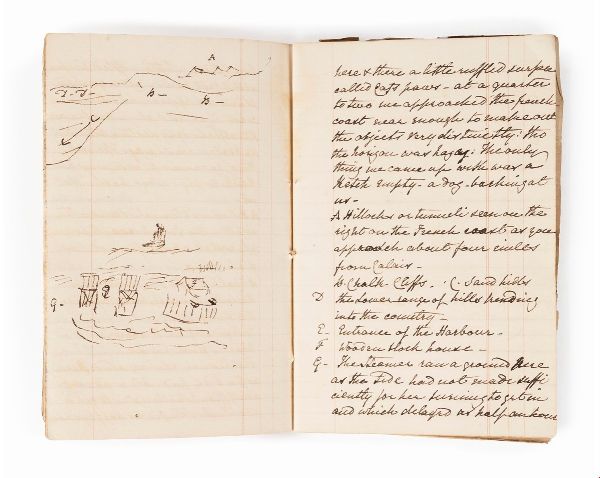 A
D - D -
B -
B -
E
G -
here & there a little ruffled surface
called Cats paws - at a quarter
to two we approached the french
coast near enough to make out
the objects very distinctly. tho
the horizon was hazy: The only
thing we came up with was a
Ketch empty - a dog barking at
us -
A Hillocks or tumuli seen on the
right on the French coast as you
approach about four miles
from Calais -
B Chalk Cliffs. . C. Sand hills
D the lower range of hills trending
into the country -
E - Entrance of the Harbour -
F Wooden block house -
G - The Steamer ran a ground here
as the tide had not made suffi
ciently for her to get in
and which delayed us half an hour